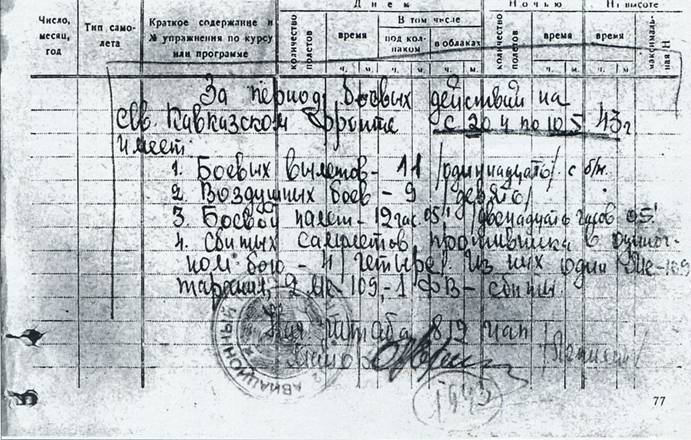 Днем
Ночью
На высоте
Число, месяц, год
Тип само-
лета
Краткое содержание и
№ упражнения по курсу
или программе
количество полетов
время
В том числе
под кол-
паком
в облаках
количество полетов
время
время
максималь-
ная Н
ч. м. ч. м. ч. м. ч. м. ч. м.
За период боевых действий на
Сев. Кавказском фронте с 20 4 по 10.5 43 г
имеет
1. Боевых вылетов - 11 /одиннадцать/ с б/н.
2. Воздушных боев - 9 /девять/
3. Боевой налет - 12 час. 05' /двенадцать часов 05'
4. сбитых самолетов противника в одиноч-
ном бою - 4 /четыре/. Из них один МЕ-109
тараном, 2 МЕ 109, - 1 ФВ - сбиты.
Нач штаба 812 иап
АВИАЦИОННЫЙ
1943
77